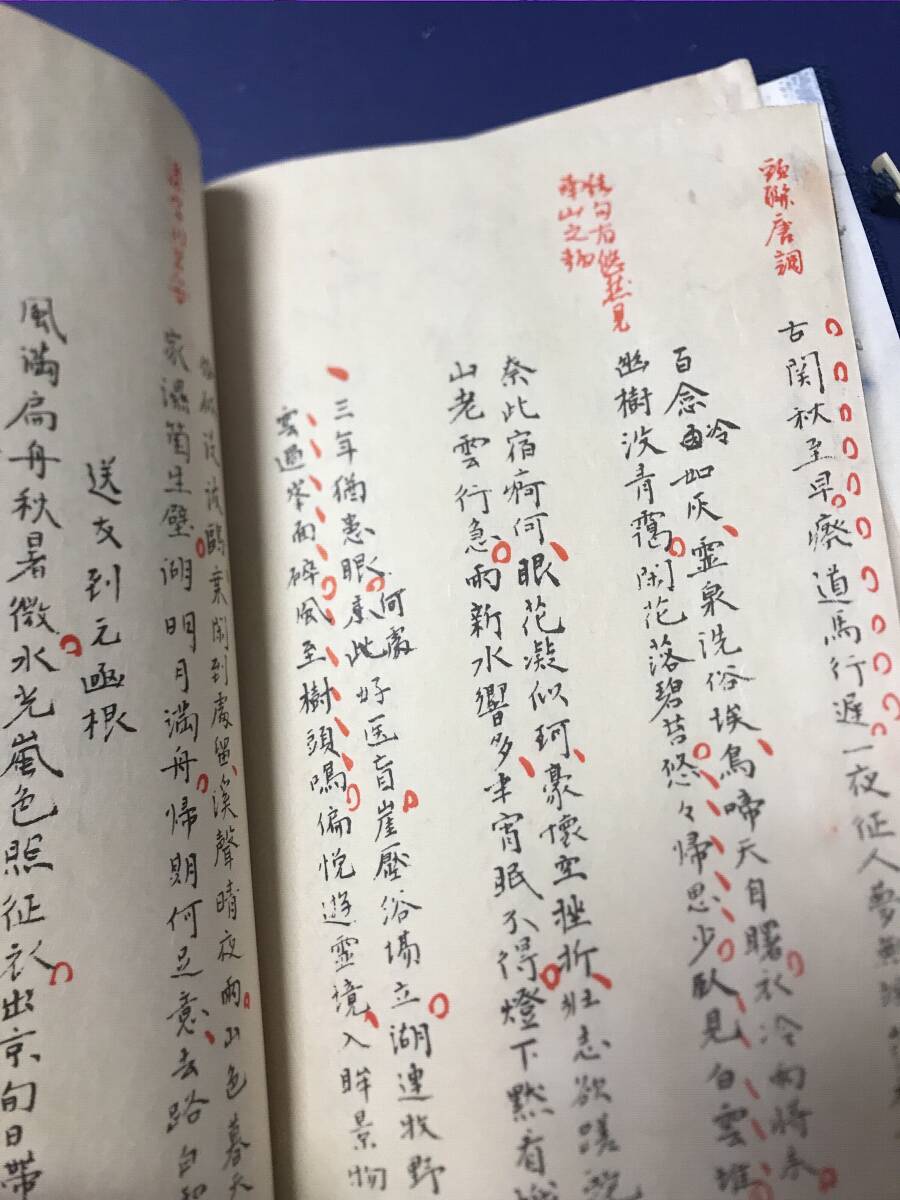 頭聯唐調
古関秋至早瘵道馬行遅一夜征人夢無
百念冷如灰靈泉洗俗埃鳥啼天自曙衣冷雨将来
幽樹没青靄閑花落碧苔悠々帰思少臥見白雲堆
結句有悠然見
南山之趣
奈此宿痾何眼花凝似珂豪懷空挫折壮志欲蹉跎
山老雲行急雨新水響多半宵眠不得燈下黙看
三年猶患眼何處好医盲崖壓俗場立湖連牧野
雲過峯面碎風至樹頭鳴偏悦遊靈境入眸景物
没波鷗棄閑到處留溪聲晴夜雨山色暮天
家濕菌生壁湖明月満舟帰期何足意去路自
送友到元函根
風満扁舟秋暑微水光嵐色照征衣出京旬日帶